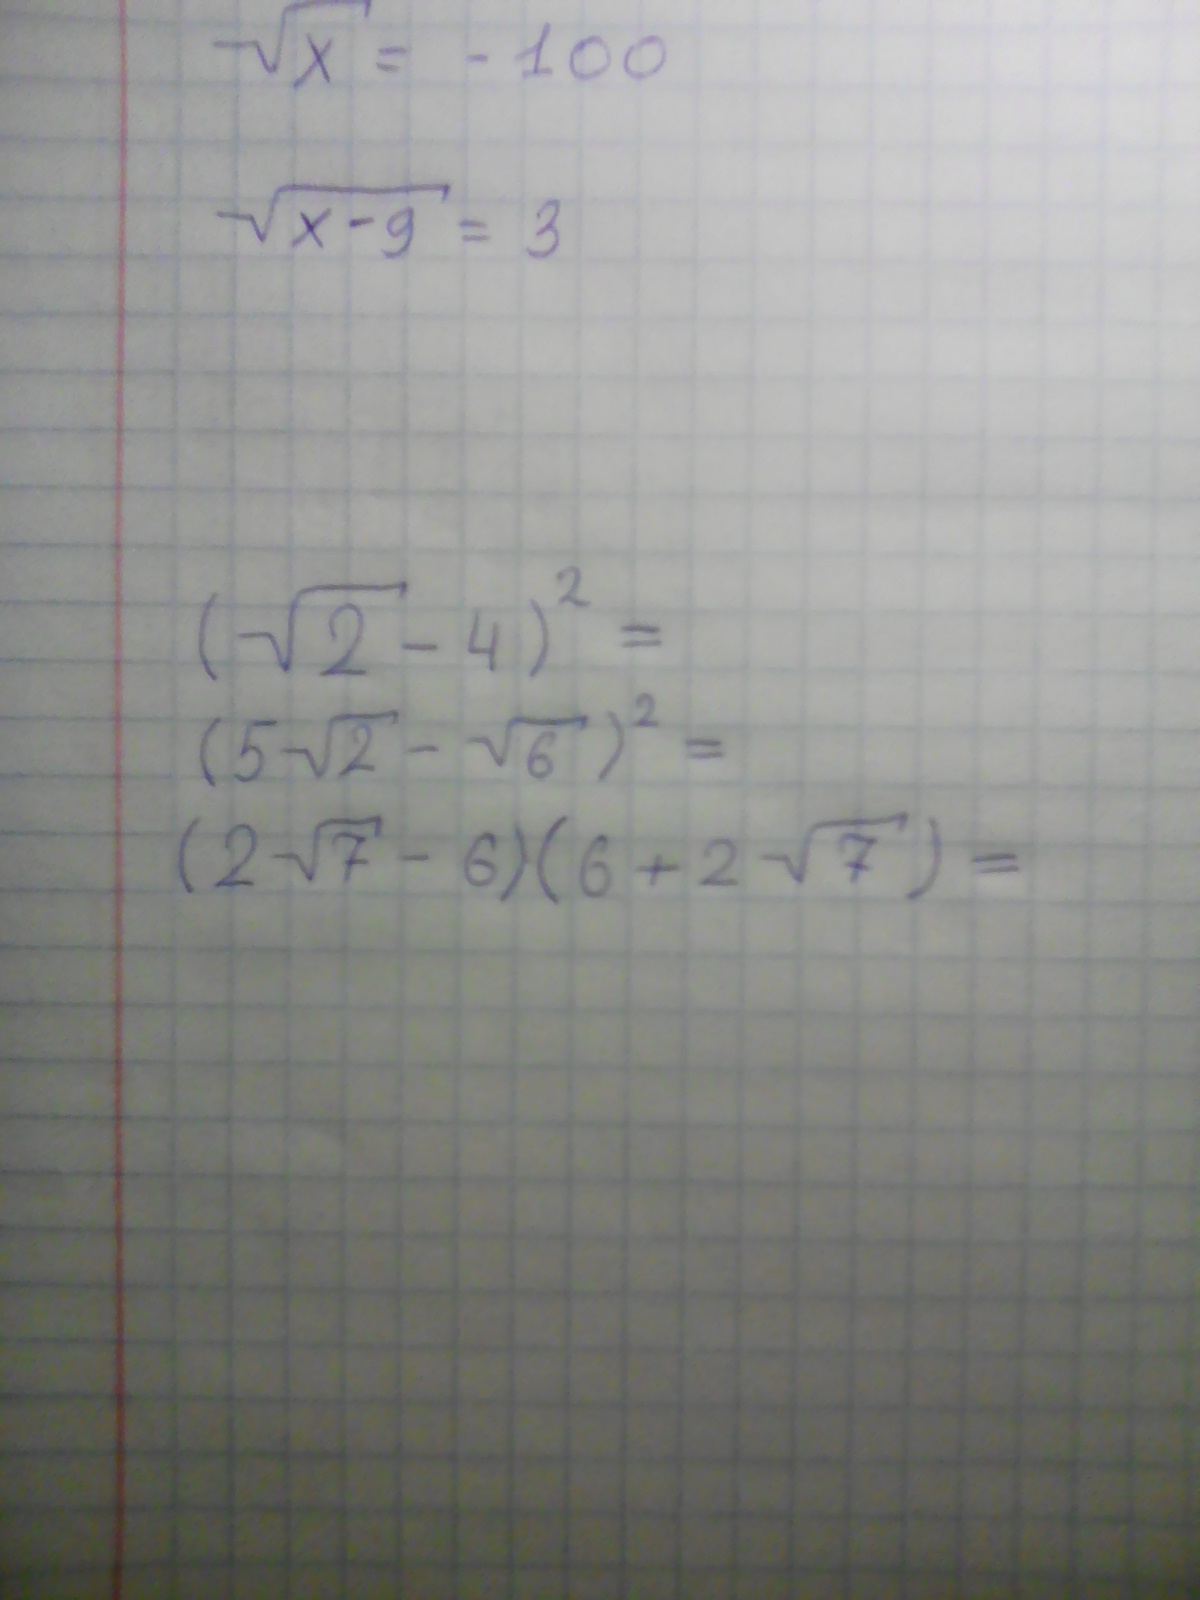 √x = - 100
√(x - 9) = 3
(√2 - 4)² =
(5√2 - √6)² =
(2√7 - 6)(6 + 2√7) =